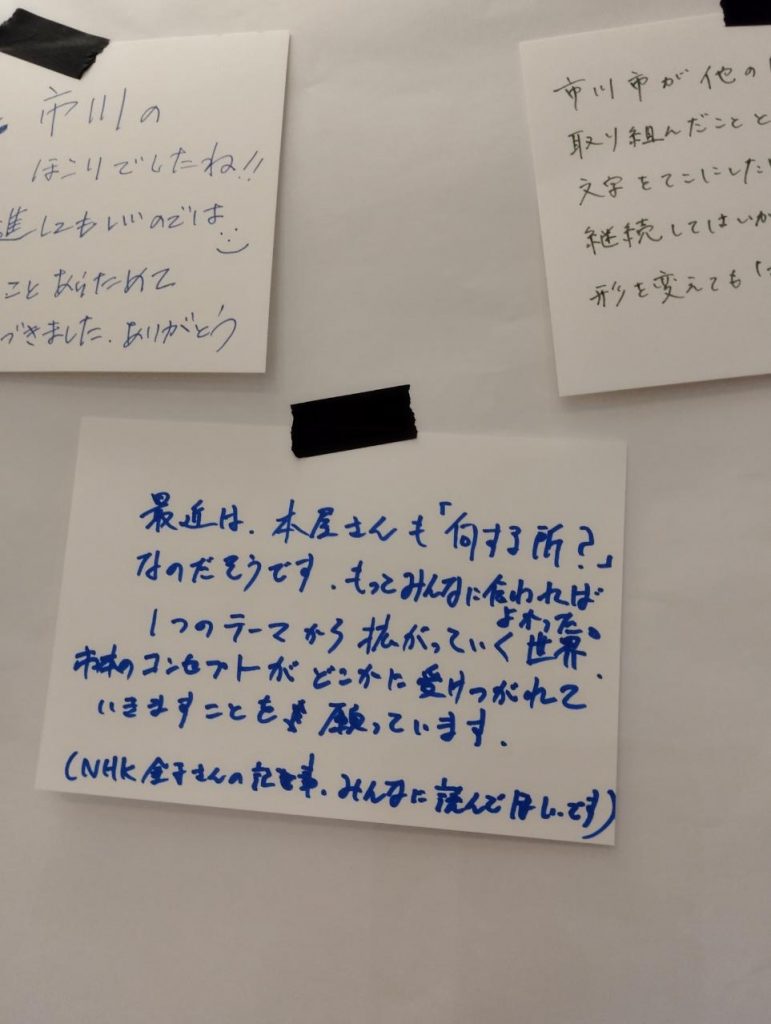 市川の
ほこりでしたね!!
進してもいいのでは
ことあらためて
づきました.ありがとう
市川市が他の
取り組んだことと
文字をてこにした
継続してはいか
形を変えても「
最近は、本屋さんも「何する所?」
なのだそうです.もってみんなに伝われば
よかった。
1つのテーマから拡がっていく世界.
市本のコンセプトがどこかに受けつがれて
いきますことを願っています.
(NHK金子さんの記事、みんなに読んでほしいです)